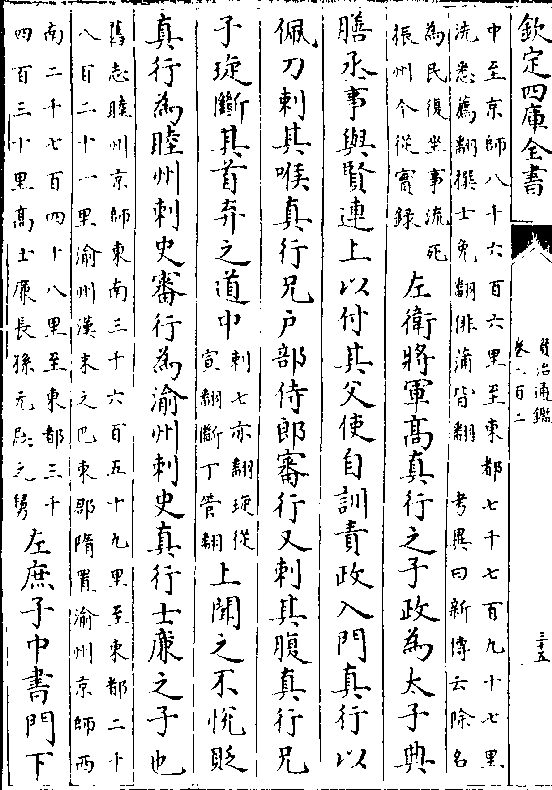 欽定四庫全書
資治通鑑
卷二百二
三十五
中至京師八千六百六里至東都七千七百九十七里
流悉薦翻撰士免翻俳蒲皆翻 考異曰新傳云除名
為民復坐事流死
振州今從實錄
左衛將軍髙真行之子政為太子典
膳丞事與賢連上以付其父使自訓責政入門真行以
佩刀刺其喉真行兄户部侍郎審行又刺其腹真行兄
子琁斷其首弃之道中
刺七亦翻琁從
宣翻斷丁管翻
上聞之不悅貶
真行為睦州刺史審行為渝州刺史真行士廉之子也
舊志睦州京師東南三千六百五十九里至東都二千
八百二十一里渝州漢末之巴東郡隋置渝州京師西
南二千七百四十八里至東都三千
四百三十里髙士廉長孫无忌之舅
左庶子中書門下